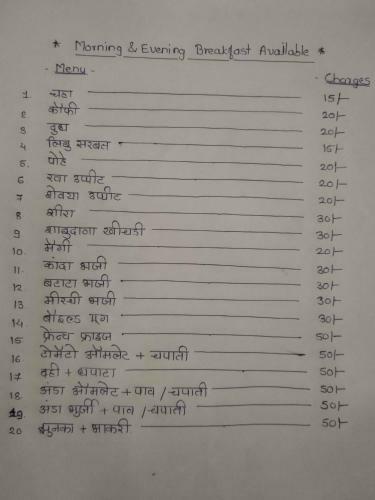 * Morning & Evening Breakfast Available *
- Menu -
- Charges
1. चहा 15/-
2 कॉफी 20/-
3 दुध 20/-
4 लिंबु सरबत 15/-
5. पोहे 20/-
6 रवा उप्पीट 20/-
7 शेवया उप्पीट 20/-
8 शीरा 30/-
9 शाबुदाणा खीचडी 30/-
10. मॅगी 20/-
11. कांदा भजी 30/-
12. बटाटा भजी 30/-
13. मीरची भजी 30/-
14. बॉईल्ड एग 30/-
15 फ्रेन्च फ्राइज 50/-
16 टोमॅटो ऑमलेट + चपाती 50/-
17 दही + चपाटा 50/-
18. अंडा ऑमलेट + पाव / चपाती 50/-
19. अंडा भुर्जी + पाव / चपाती 50/-
20 झुनका + भाकरी 50/-